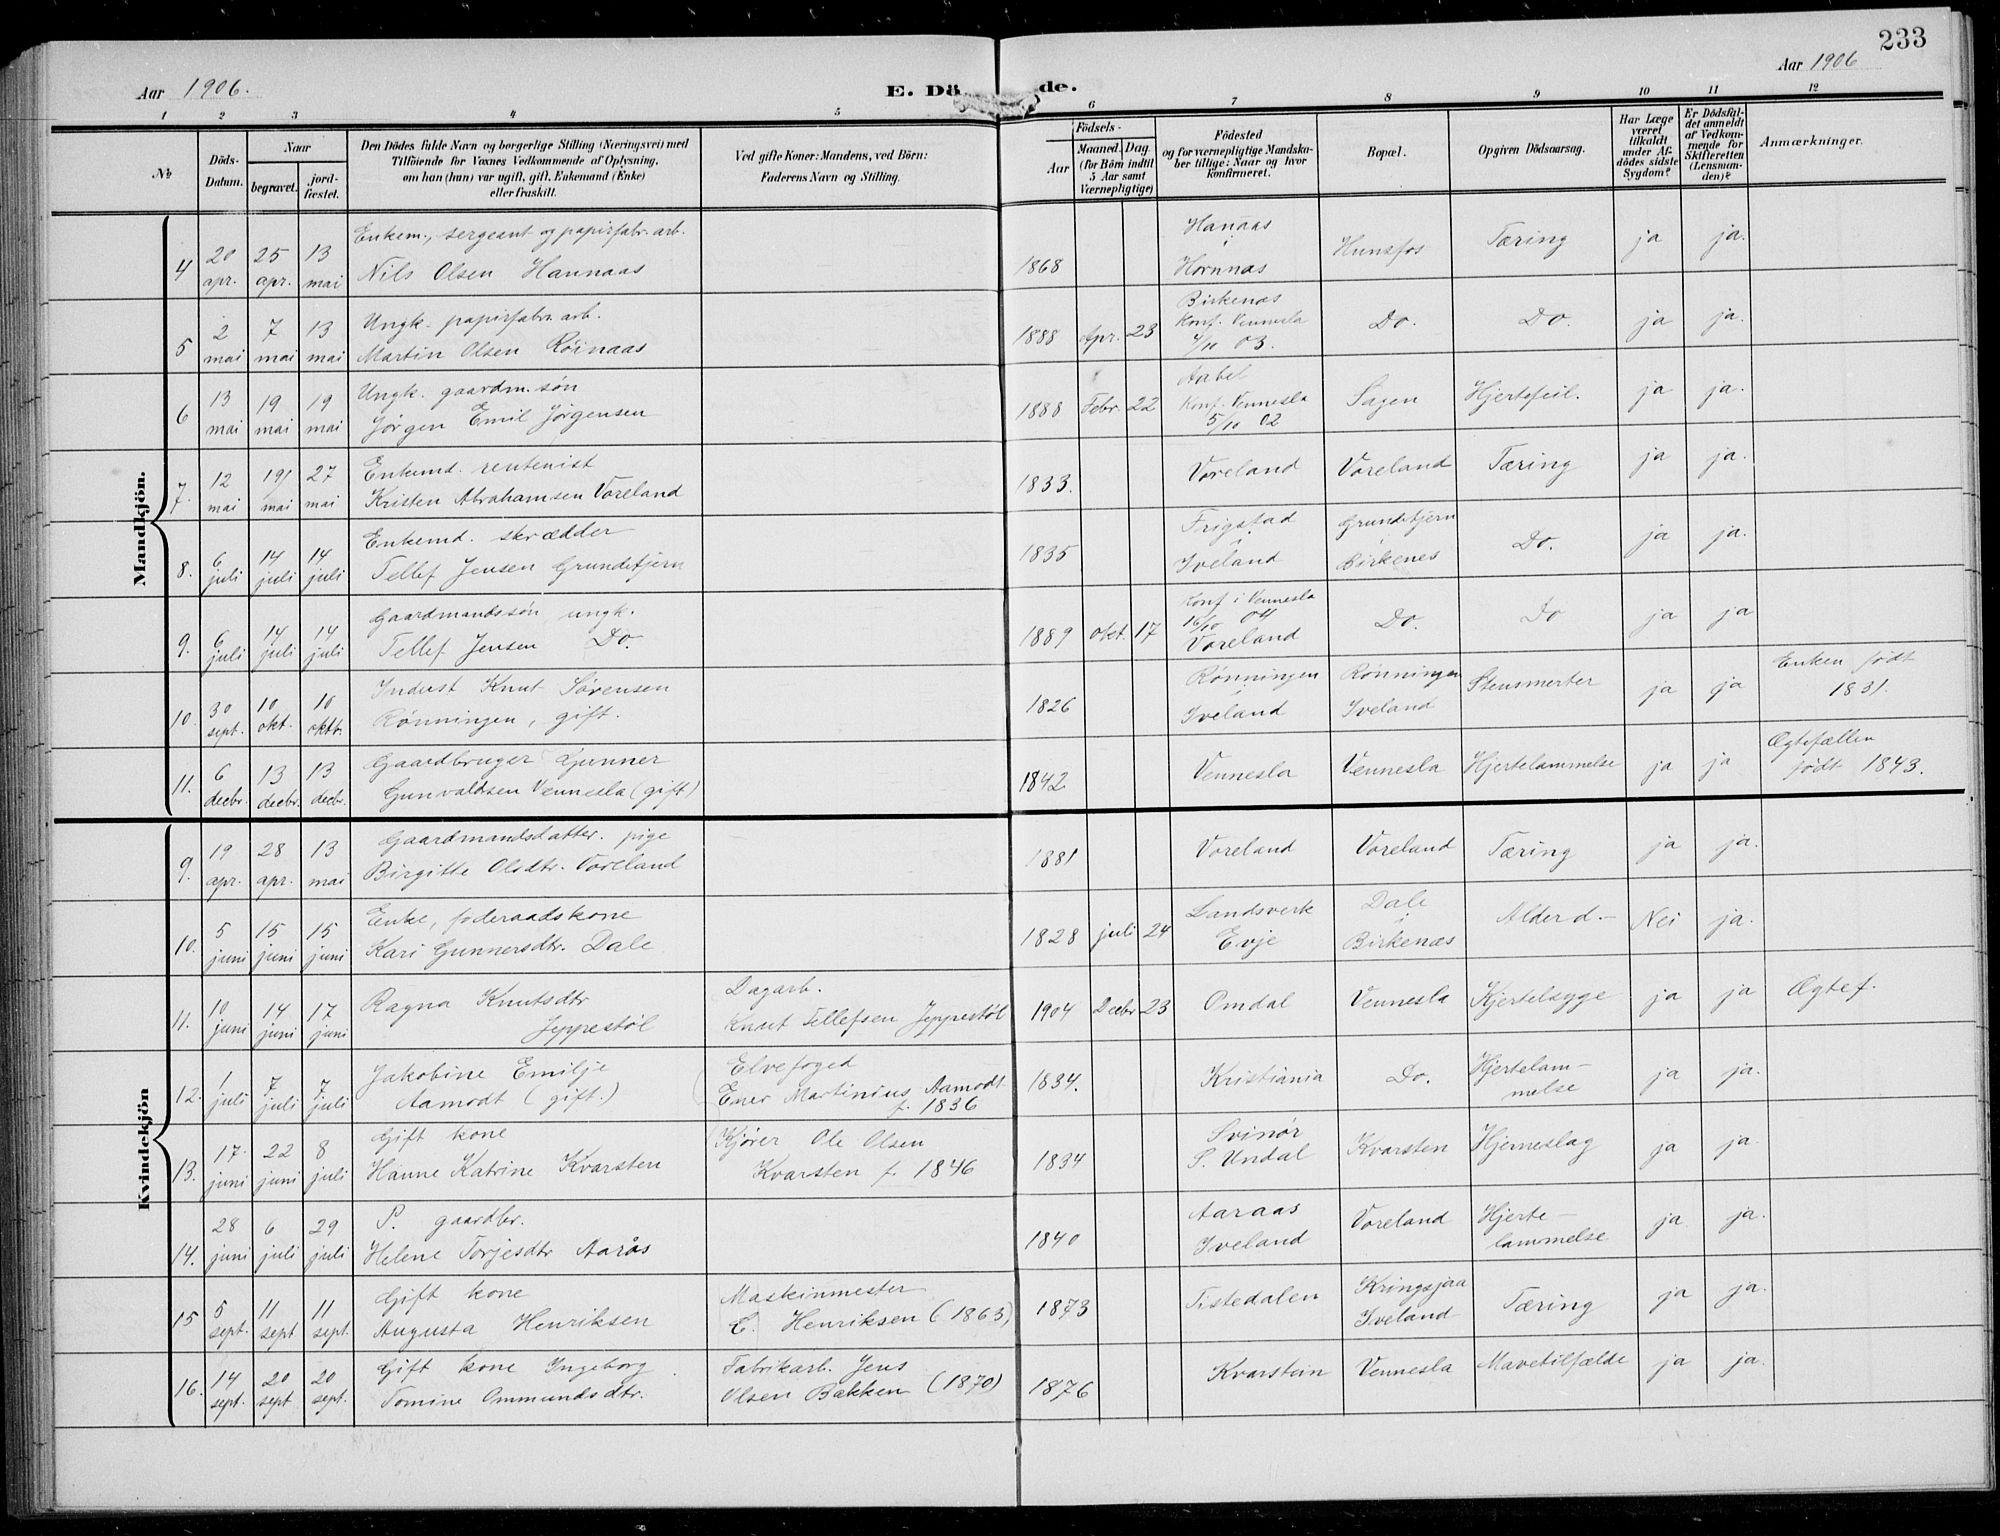 233
Aar 1906.
E. Dö de.
Aar 1906
1 2 3 4 5 6 7 8 9 10 11 12
№
Döds-Datum.
Naar
begravet.
jordfæstet.
Den Dödes fulde Navn og borgerlige Stilling (Næringsvei) med
Tilföiende for Voxnes Vedkommende af Oplysning,
om han (hun) var ugift, gift, Enkemand (Enke)
eller fraskilt.
Ved gifte Koner: Mandens, ved Börn:
Faderens Navn og Stilling.
Aar
Födsels-
Maaned. Dag.
(for Börn indtil
5 Aar samt
Værnepligtige)
Födested
og for værnepligtige Mandska-
ber tillige: Naar og hvor
konfirmeret.
Bopæl.
Opgiven Dödsaarsag.
Har Læge
været
tilkaldt
under Af-
dödes sidste
Sygdom?
Er Dödsfal-
det anmeldt
af Vedkom-
mende for
Skifteretten
(Lensman-
den)?
Anmærkninger.
Mandkjön.
4 20 apr. 25 apr. 13 mai Enkem., sergeant og papirfabr. arb.
Nils Olsen Hannaas 1868 Hanaas i Hornnas Hunsfos Tæring ja ja.
5 2 mai 7 mai 13 mai Ungk. papirfabr. arb.
Martin Olsen Röinaas 1888 Apr. 23 Birkenæs Konf. Vennesla 4/10 03. Do. Do. ja ja.
6 13 mai 19 mai 19 mai Ungk. gaardm. søn
Jørgen Emil Jørgensen 1888 Febr. 22 Aabel Konf. Vennesla 5/10 02 Sagen Hjertefeil. ja ja.
7. 12 mai 19 mai 27 mai Enkemd. rentenist
Kristen Abrahamsen Voreland 1833. Voreland Voreland Tæring ja ja.
8. 6 juli 14 juli 14 juli Enkemd. skrædder
Tellef Jensen Grundetjern 1835 Frigstad i Iveland Grundetjern Birkenes Do. ja ja.
9. 6 juli 14 juli 14 juli Gaardmandssøn ungk.
Tellef Jensen Do. 1889 Okt. 17 Konf i Vennesla 16/10 04 Voreland Do. Do ja ja
10. 30 sept. 10 okt. 10 oktbr. Indust Knut Sörensen
Rønningen, gift. 1826 Rønningen i Iveland Rønningen Iveland Stensmerter ja ja Enken født 1831.
11. 6 decbr. 13 decbr. 13 decbr. Gaardbruger Gunner
Gunvaldsen Vennesla (gift) 1842 Vennesla Vennesla Hjertelammelse ja ja Ægtefællen født 1843.
Kvindekjön
9. 19 apr. 28 apr. 13 mai Gaardmandsdatter. pige
Birgitte Olsdtr. Voreland 1881 Voreland Voreland Tæring ja ja.
10. 5 juni 15 juni 15 juni Enke, föderaadskone
Kari Gunnersdtr. Dale 1828 juli 24 Landsverk Evje Dale i Birkenæs Alderd.- Nei ja.
11. 10 juni 14 juni 17 juni Ragna Knutsdtr
Jeppestøl Dagarb. Knut Tellefsen Jeppestøl 1904 Decbr 23 Omdal Vennesla Hjertelsyge ja ja Ægtef.
12. 1 juli 7 juli 7 juli Jakobine Emilje
Aamodt (gift.) Elvefoged Ener Martinius Aamodt f. 1836 1834. Kristiania Do. Hjertelam-
melse ja ja
13. 17. juni 22 juni 8 juli Gift kone
Hanne Katrine Kvarsten Kjörer Ole Olsen Kvarsten f. 1846 1834 Svinör S. Undal Kvarsten Hjerneslag ja ja.
14. 28 juni 6 juli 29 juli P. gaardbr.
Helene Torjesdtr Aarås 1840 Aaraas Iveland Voreland Hjerte-
lammelse ja ja.
15 5 sept. 11 sept 11 sept Gift kone
Augusta Henriksen Maskinmester C. Henriksen (1863) 1873 Tistedalen Kringsjaa Iveland Tæring ja ja.
16. 14 sept. 20 sept 20 sept. Gift kone Ingeborg
Tomine Ommundsdtr. Fabrikarb. Jens Olsen Bakken (1870) 1876 Kvarstein Vennesla Mavetilfælde ja ja.